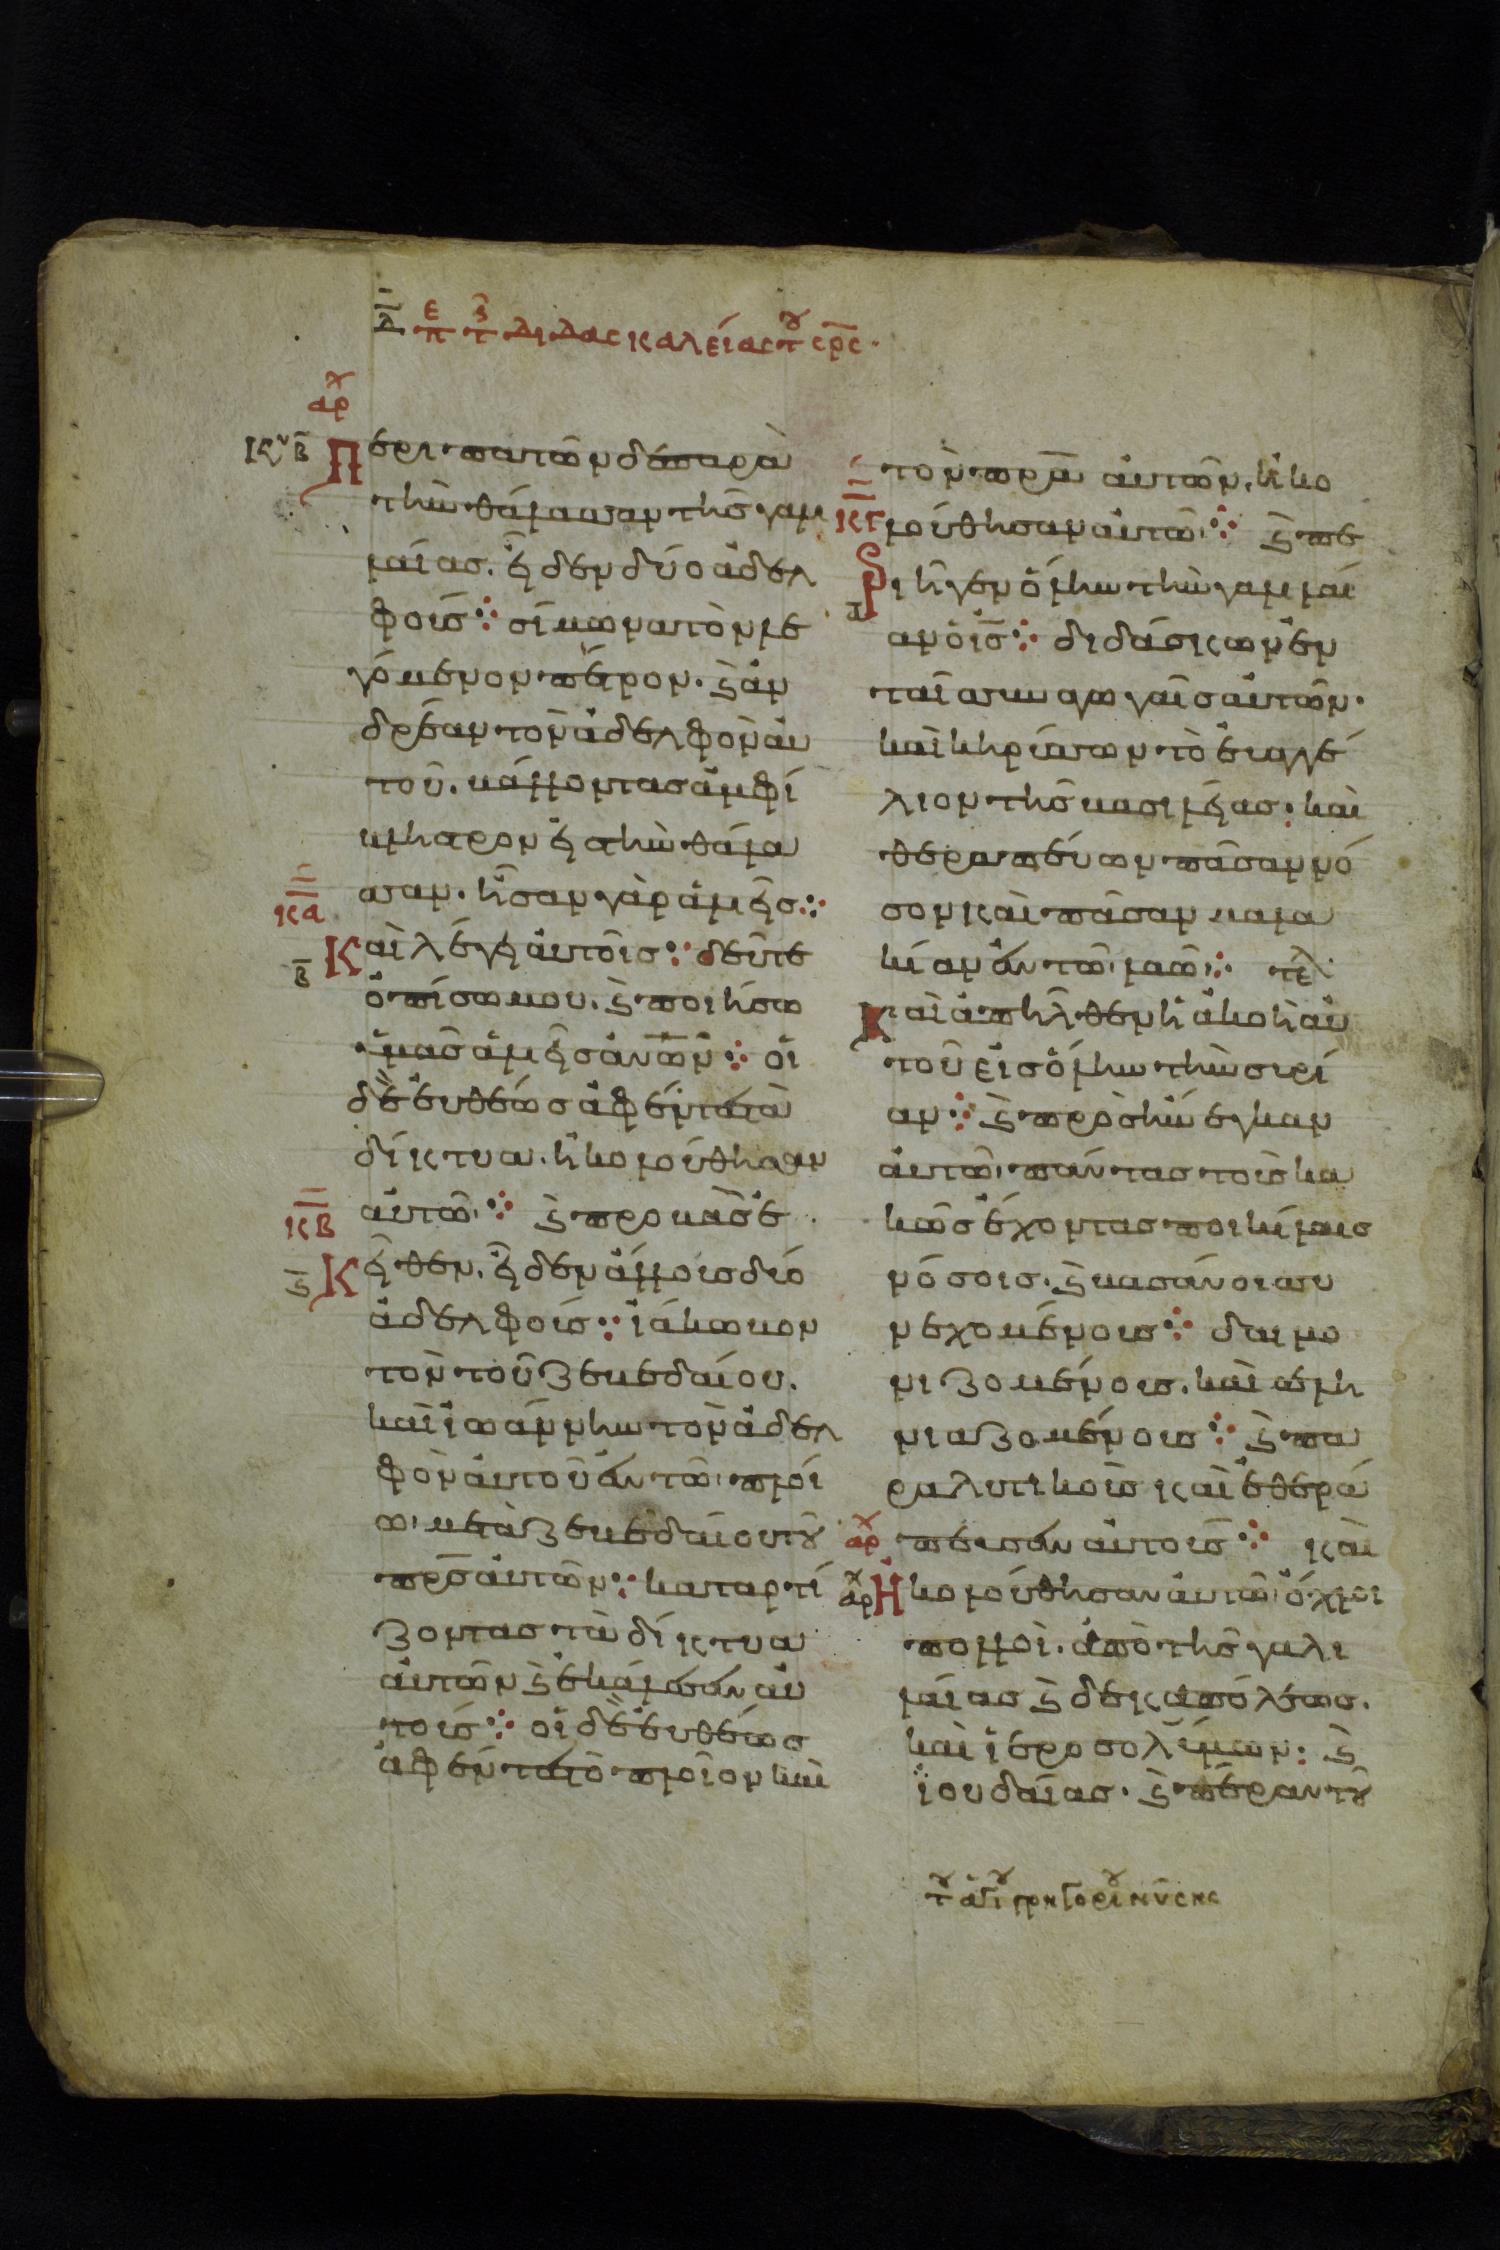 δ̄ επ τ̑ διδασκαλείας τ̑ σρ̄ς.
αρχ
Κυ β̄
Περιπατῶν δὲ παρὰ
τὴν θάλασσαν τῆς γαλι
λαίας. εἶδεν δύο ἀδελ
φούς· σίμωνα τὸν λε
γόμενον πέτρον. ϗ ἀν
δρέαν τὸν ἀδελφὸν αὐ
τοῦ. βάλλοντας ἀμφί
βληστρον εἰς τὴν θάλα
σσαν. ἦσαν γὰρ ἁλιεῖς·
κα
β̄
Καὶ λέγει αὐτοῖς· δεῦτε
ὀπίσω μου. ϗ ποιήσω
ὑμᾶς ἁλιεῖς ἀνῶν· οἱ
δὲ εὐθέως ἀφέντες τὰ
δίκτυα. ἠκολούθησαν
αὐτῶ· ϗ προβὰς ἐ
κβ
ς̄
Κεῖθεν. εἶδεν ἄλλους δύο
ἀδελφούς· ἰάκωβον
τὸν τοῦ ζεβεδαίου.
καὶ ἰωάννην τὸν ἀδελ
φὸν αὐτοῦ ἐν τῶ πλοί
ω μετὰ ζεβεδαίου τοῦ
πρς αὐτῶν· καταρτί
ζοντας τὰ δίκτυα
αὐτῶν ϗ ἐκάλεσεν αὐ
τούς· οἱ δὲ εὐθέως
ἀφέντες τὸ πλοῖον καὶ
τὸν πρα αὐτῶν. ἠκο
κγ
λούθησαν αὐτῶ· ϗ πε
ριῆγεν ὅλην τὴν γαλιλαί
αν ὁ ἰς· διδάσκων ἐν
ταῖς συναγωγαῖς αὐτῶν.
καὶ κηρύσσων τὸ εὐαγγέ
λιον τῆς βασιλείας. καὶ
θεραπεύων πᾶσαν νό
σον καὶ πᾶσαν μαλα
κίαν ἐν τῶ λαῶ· τελ
Καὶ ἀπῆλθεν ἡ ἀκοὴ αὐ
τοῦ εἰς ὅλην τὴν συρί
αν· ϗ προσήνεγκαν
αὐτῶ πάντας τοὺς κα
κῶς ἔχοντας ποικίλαις
νόσοις. ϗ βασάνοις συ
νεχομένους· δαιμο
νιζομένους. καὶ σελη
νιαζομένους· ϗ πα
ραλυτικοὺς καὶ ἐθερά
αρχ
πευσεν αὐτούς· καὶ
αρχ
Ἠκολούθησαν αὐτῶ ὄχλοι
πολλοὶ. ἀπὸ τῆς γαλι
λαίας ϗ δεκαπόλεως.
καὶ ἱεροσολύμων· ϗ
ἰουδαίας. ϗ πέραν τοῦ